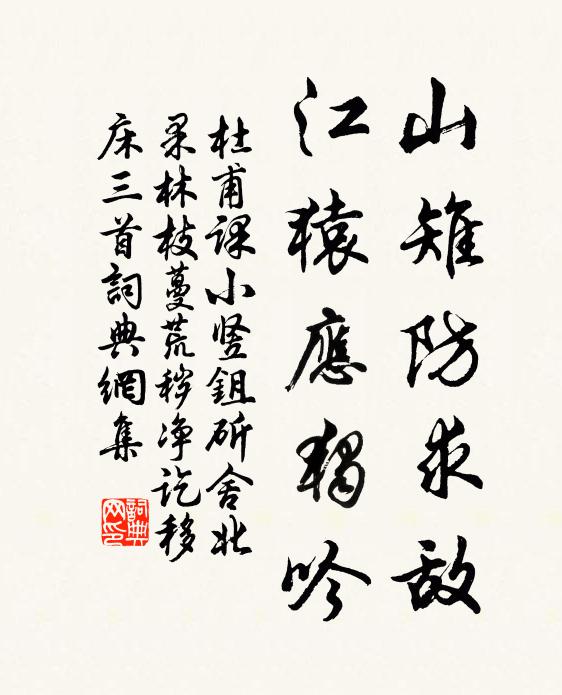 山雉防求敵
江猿應獨吟
杜甫課小豎鉏斫舍北
果林枝蔓荒穢净訖移
床三首詞典網集
詞典
网印